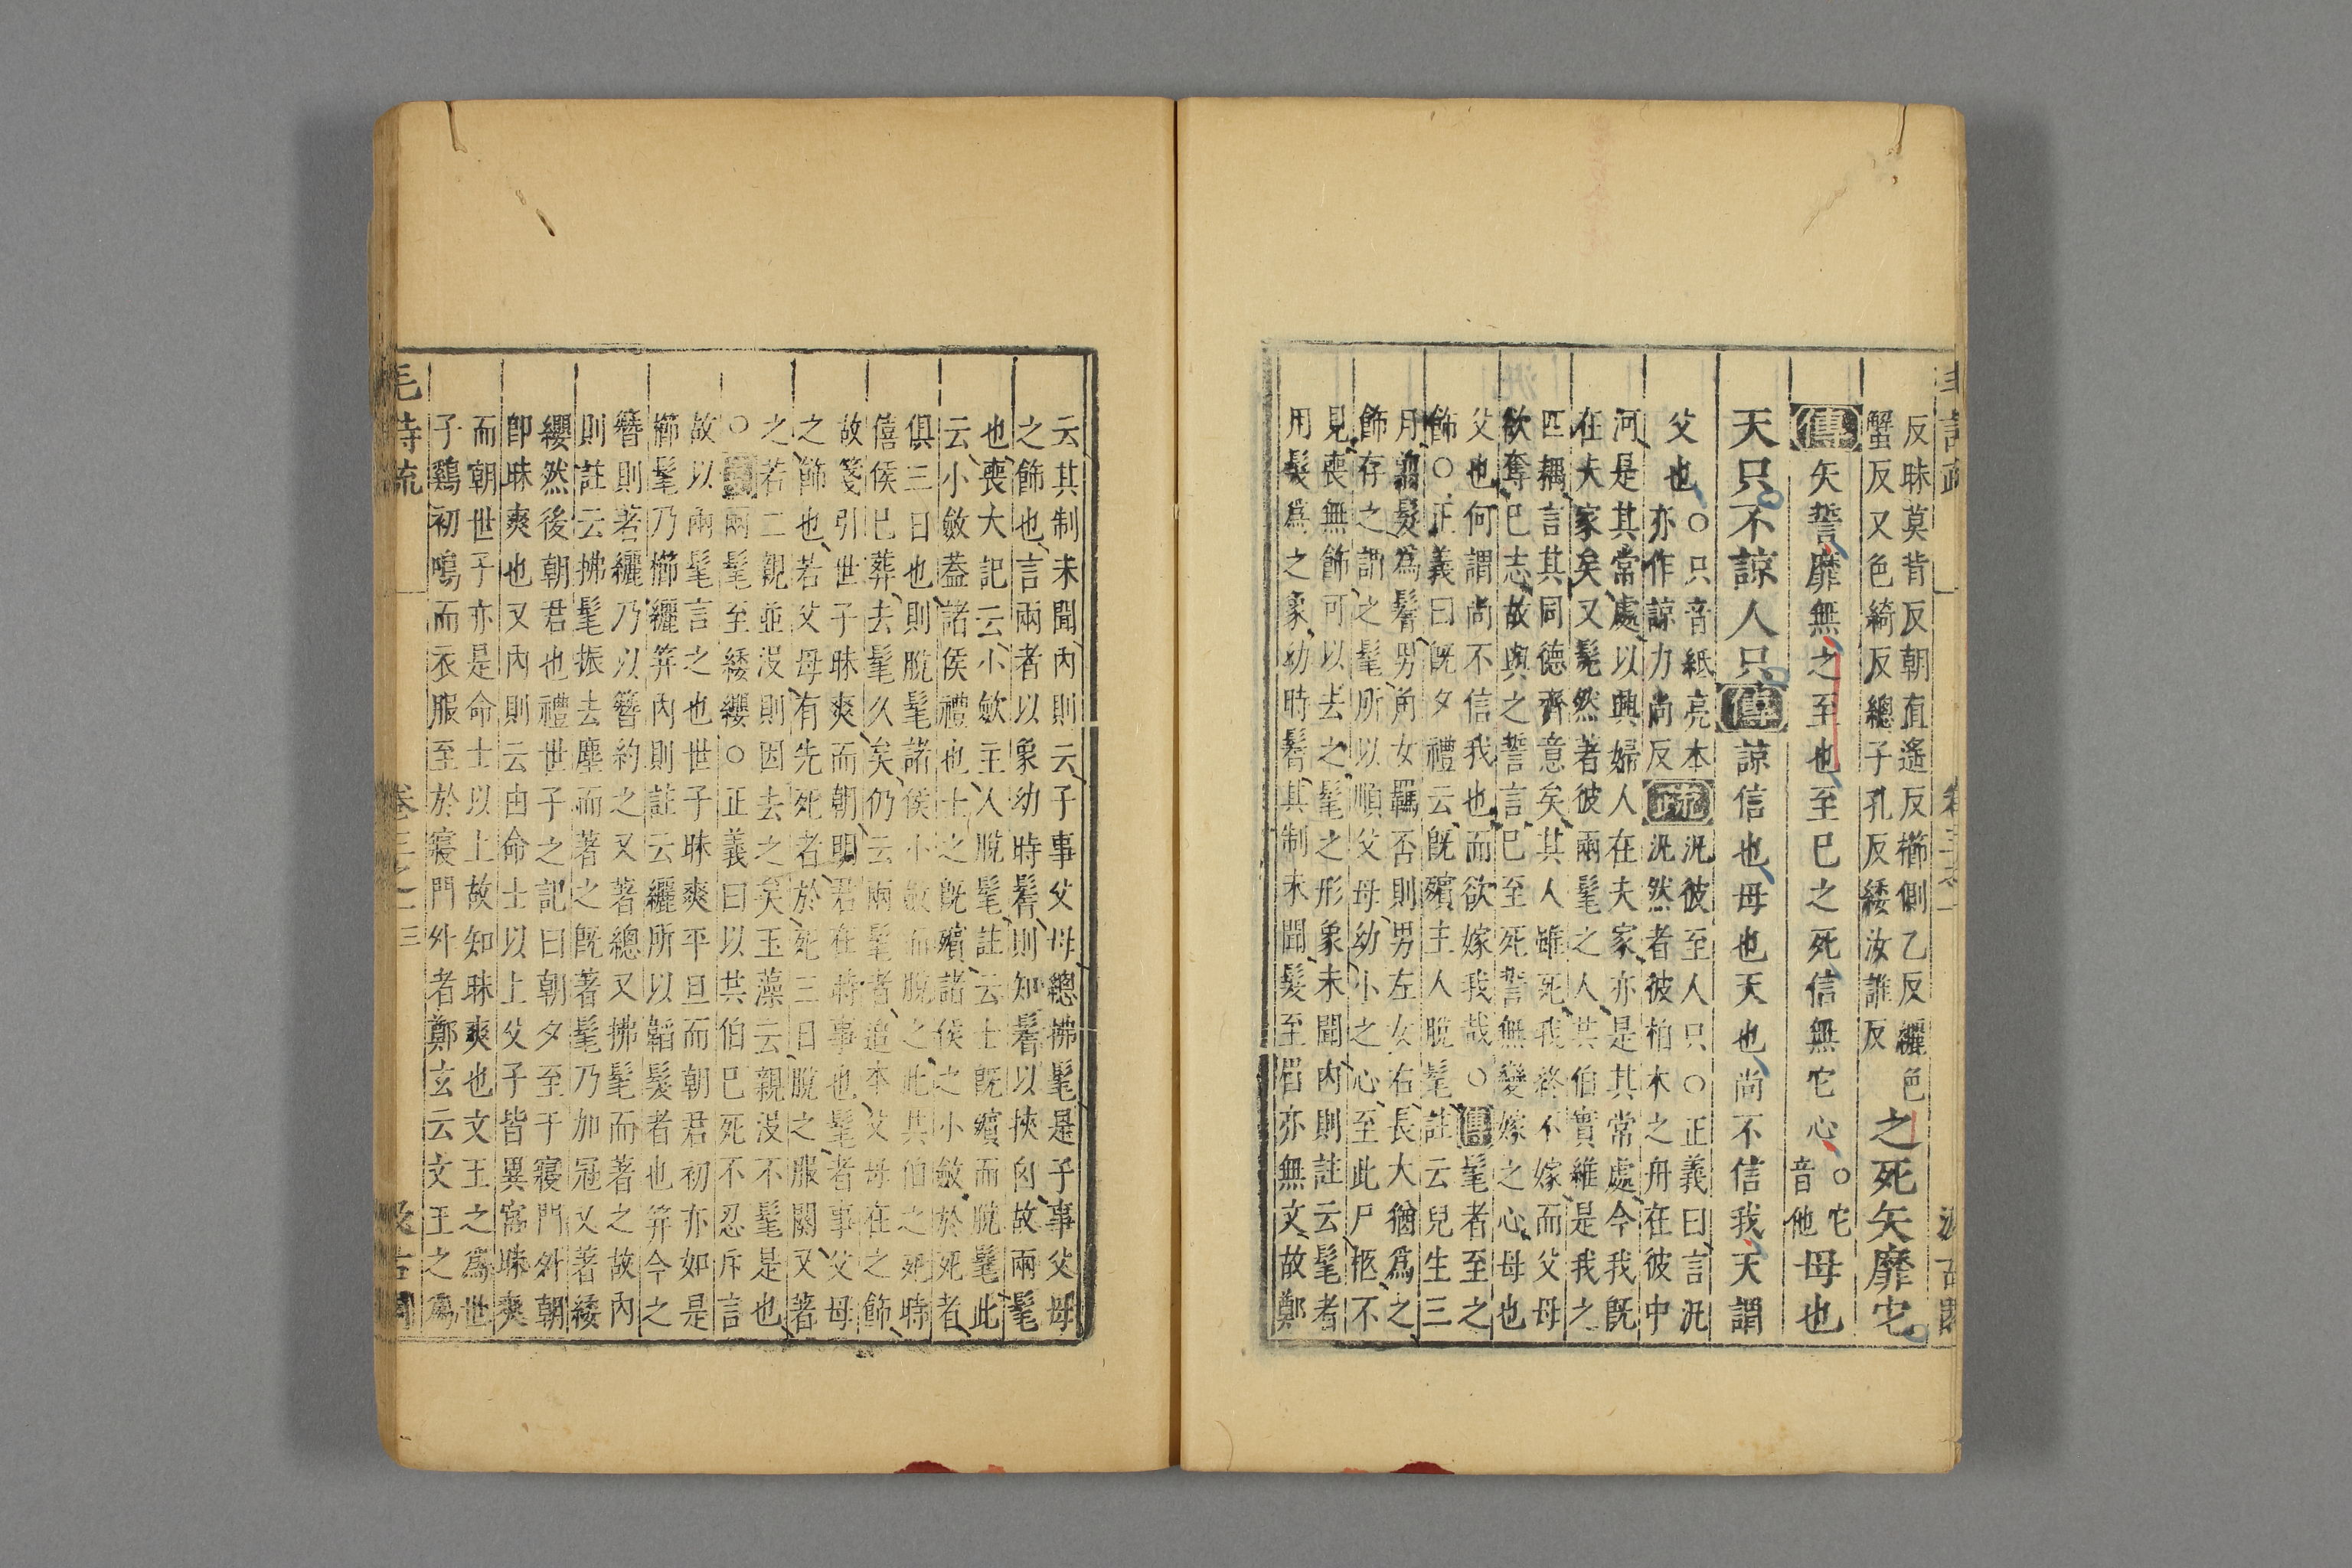 反昧莫背反朝直遙反櫛側乙反纚色
蟹反又色綺反緫子孔反緌汝誰反
之死矢靡它
傳
矢誓靡無之至也至巳之死信無它心
○它
音他
母也
天只不諒人只
傳
諒信也母也天也尚不信我天謂
父也
○只音紙亮本
亦作諒力尚反
疏
汎彼至人只○正義曰言汎
汎然者彼柏木之舟在彼中
河是其常處以興婦人在夫家亦是其常處今我旣
在夫家矣又髧然著彼兩髦之人共伯實維是我之
匹耦言其同德齊意矣其人雖死我終不嫁而父母
欲奪巳志故與之誓言巳至死誓無變嫁之心母也
父也何謂尚不信我也而欲嫁我哉○傳髦者至之
飾○正義曰旣夕禮云旣殯主人脫髦註云兒生三
月翦髮爲鬌男角女羈否則男左女右長大猶爲之
飾存之謂之髦所以順父母幼小之心至此尸柩不
見喪無飾可以去之髦之形象未聞內則註云髦者
用髮爲之象幼時鬌其制未聞髮至眉亦無文故鄭
云其制未聞內則云子事父母總拂髦是子事父母
之飾也言兩者以象幼時鬌則知鬌以挾囟故兩髦
也喪大記云小斂主人脫髦註云士旣殯而脫髦此
云小斂蓋諸侯禮也士之旣殯諸侯之小斂於死者
俱三日也則脫髦諸侯小斂而脫之此共伯之死時
僖侯巳葬去髦久矣仍云兩髦者追本父母在之飾
故箋引世子昧爽而朝明君在時事也髦者事父母
之飾也若父母有先死者於死三日脫之服闋又著
之若二親並沒則因去之矣玉藻云親沒不髦是也
○箋兩髦至緌纓○正義曰以共伯巳死不忍斥言
故以兩髦言之也世子昧爽平旦而朝君初亦如是
櫛髦乃櫛纚筓內則註云纚所以韜髮者也筓今之
簪則著纚乃以簪約之又著總又拂髦而著之故內
則註云拂髦振去塵而著之旣著髦乃加冠又著緌
纓然後朝君也禮世子之記曰朝夕至于寢門外朝
卽昧爽也又內則云由命士以上父子皆異宮昧爽
而朝世子亦是命士以上故知昧爽也文王之爲世
子雞初鳴而衣服至於寢門外者鄭玄云文王之爲
毛詩疏
卷三之一
三
汲古閣